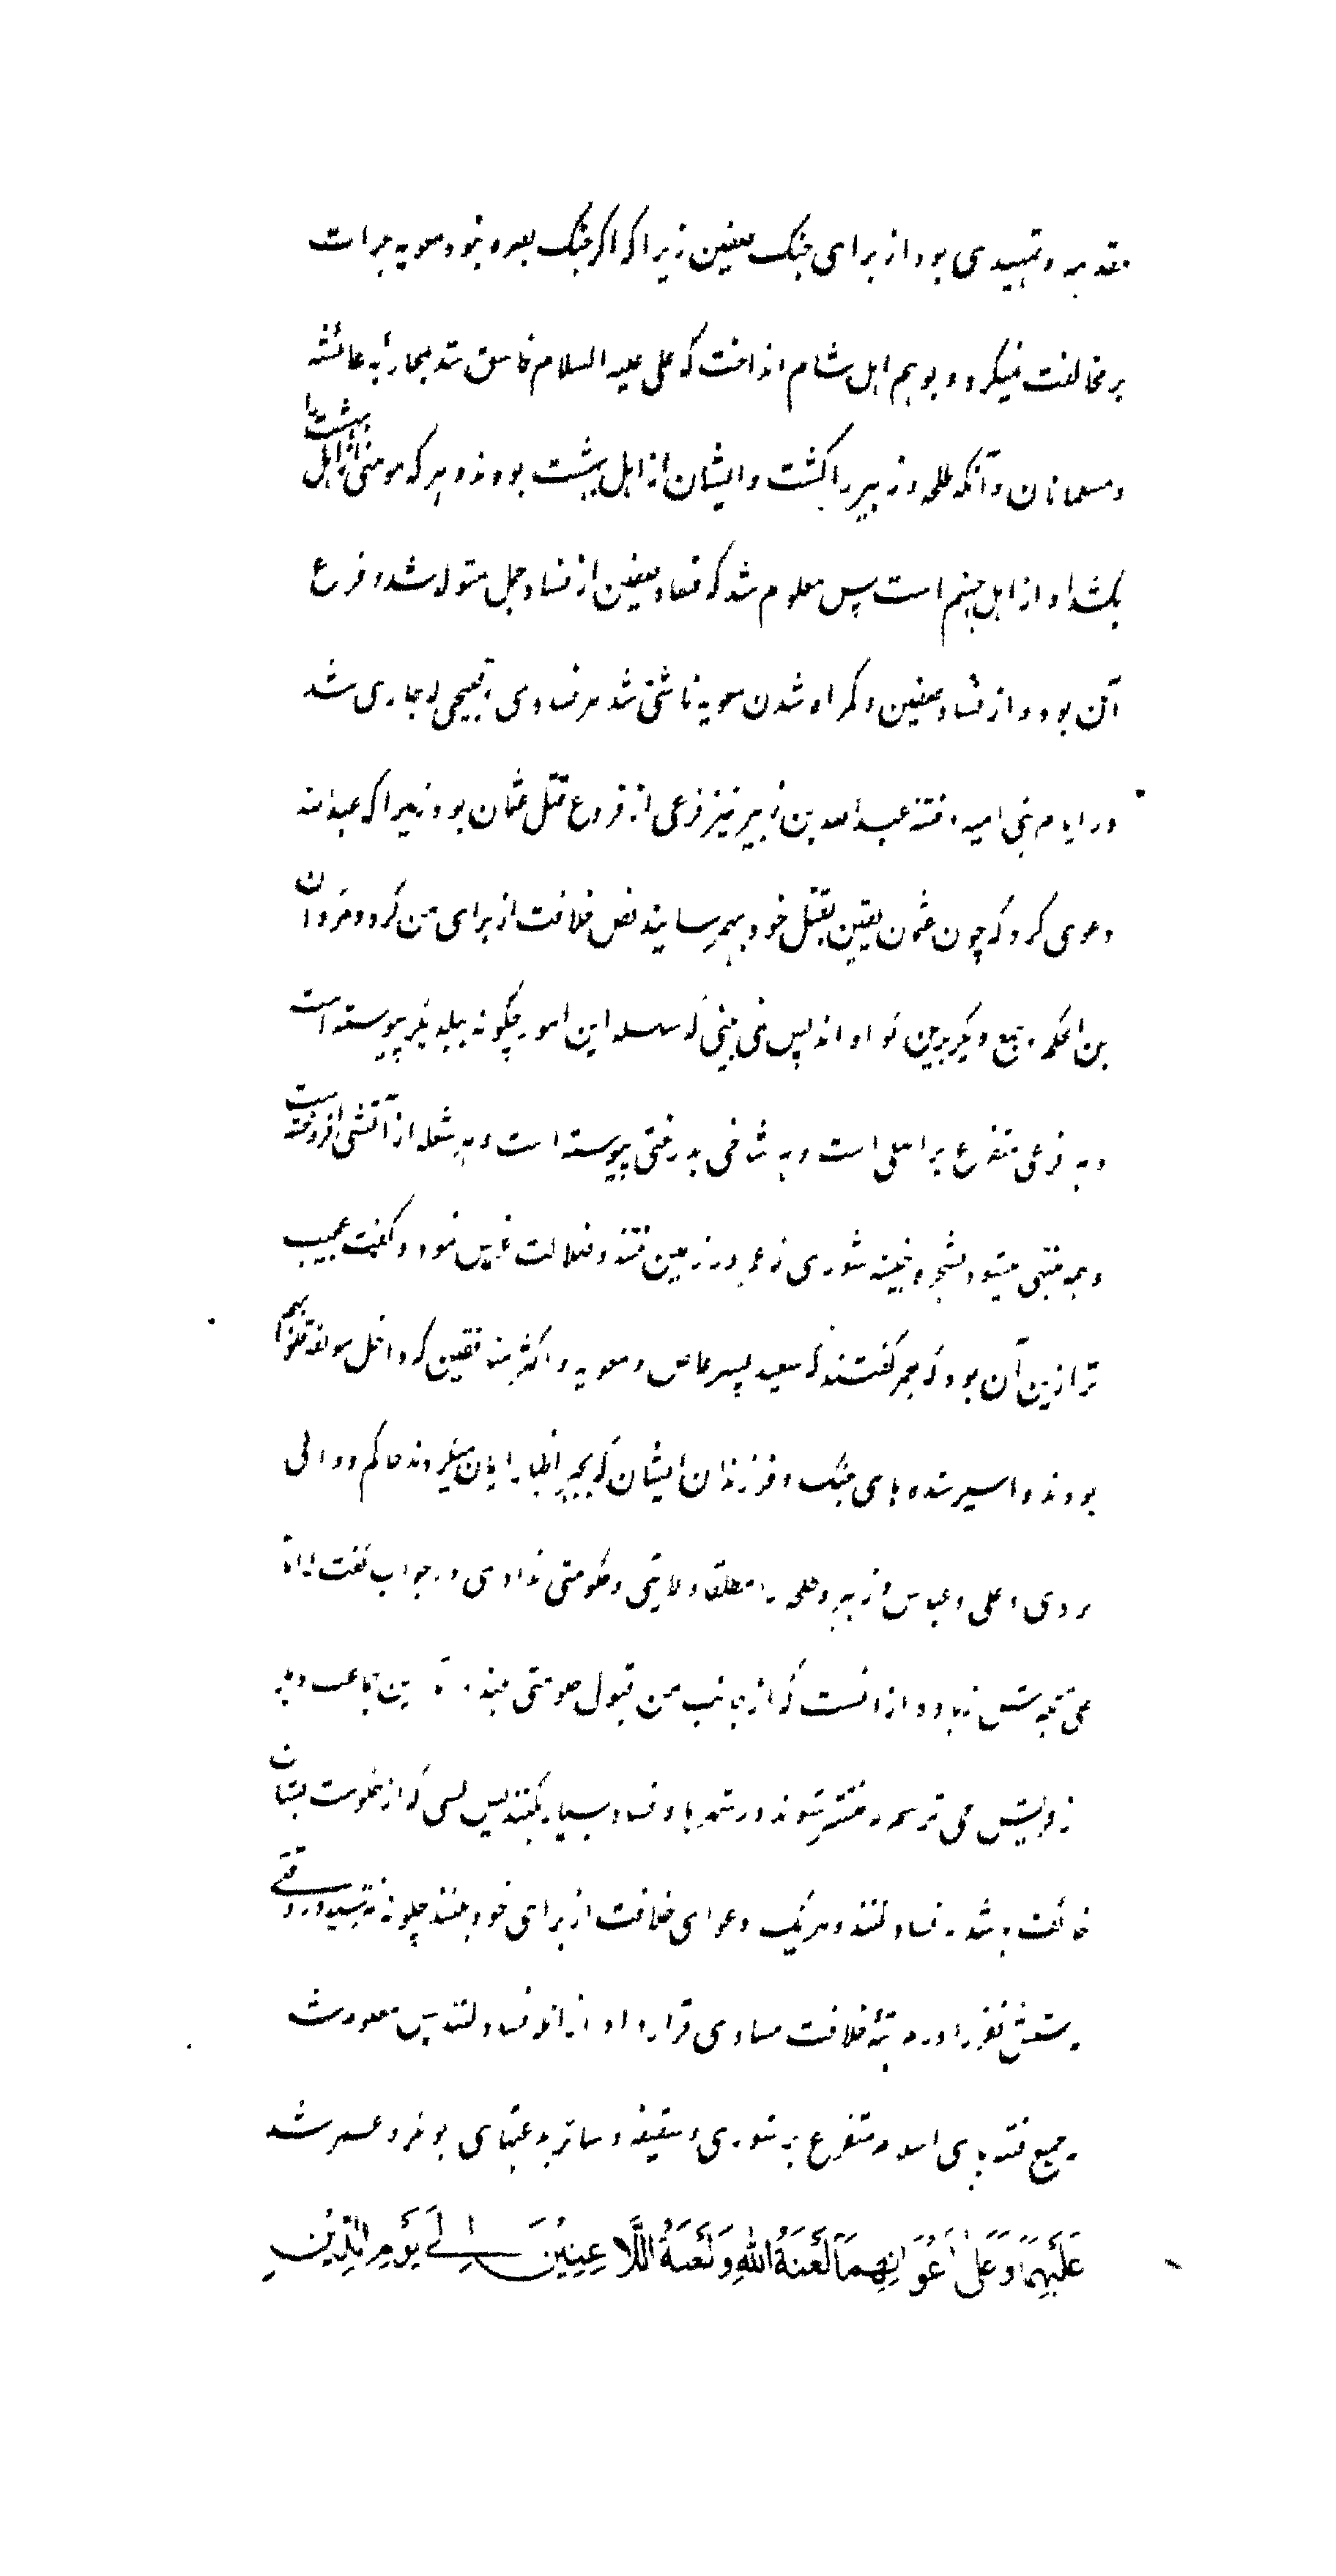 مقدمه و تمهیدی بود از برای جنک صفین زیرا که اکر جنک بصره نبود معویه جرات
بر مخالفت نمیکرد و بوهم اهل شام انداخت که علی علیه السلام فاسق شد بمحاربه عائشه
و مسلمانان و آنکه طلحه و زبیر را بکشت و ایشان از اهل بهشت بودند و هر که مومنی از اهل بهشت را
بکشد او از اهل جهنم است پس معلوم شد که فساد صفین از فساد جمل متولد شد و فرع
آن بود و از فساد صفین و کمراه شدن معویه ناشی شد هر فسادی و قبیحی که جاری شد
در ایام بنی امیه و فتنه عبدالله بن زبیر نیز فرعی از فروع قتل عثمان بود زیرا که عبدالله
دعوی کرد که چون عثمن یقین بقتل خود بهمرسانید نص خلافت از برای من کرد و مروان
بن الحکم و جمع دیکر برین کواه اند پس نمی بینی که سلسله این امور چکونه بیکدیکر پیوسته است
و هر فرعی متفرع بر اصلی است و هر شاخی بدرختی پیوسته است و هر شعله از آتشی افروخته است
و همه منتهی میشود بشجره خبیثه شوری که عمر در زمین فتنه و ضلالت غرس نمود و گفت عجیب
تر ازین آن بود که بعمر گفتند که سعید پسر عاص و معویه و اکثر منافقین که داخل مولفة قلوبهم
بودند و اسیر شده های جنک و فرزندان ایشان که بجبر اظهار ایمان میکردند حاکم و والی
کردی و علی و عباس و زبیر و طلحه را مطلقا ولایتی و حکومتی ندادی در جواب گفت اما
علی زیاده از انست که از جانب من قبول حکومتی کند و این جماعت دیگر
از قریش می ترسم که منتشر شوند در شهرها و فساد بسیار بکنند پس کسی که از حکومت ایشان
خائف باشد که فساد کنند و هر یک دعوای خلافت از برای خود بکنند چگونه نترسید در وقتی
که شش نفر را در مرتبه خلافت مساوی قرار داد از آنکه فساد کنند پس معلوم شد
که جمیع فتنه های اسلام متفرع بر شوری و سقیفه و سائر بدعتهای ابوبکر و عمر شد
عَلَيْهِمَا وَعَلَى أَعْوَانِهِمَا لَعْنَةُ اللهِ وَلَعْنَةُ اللَّاعِنِينَ إِلَى يَوْمِ الدِّينِ